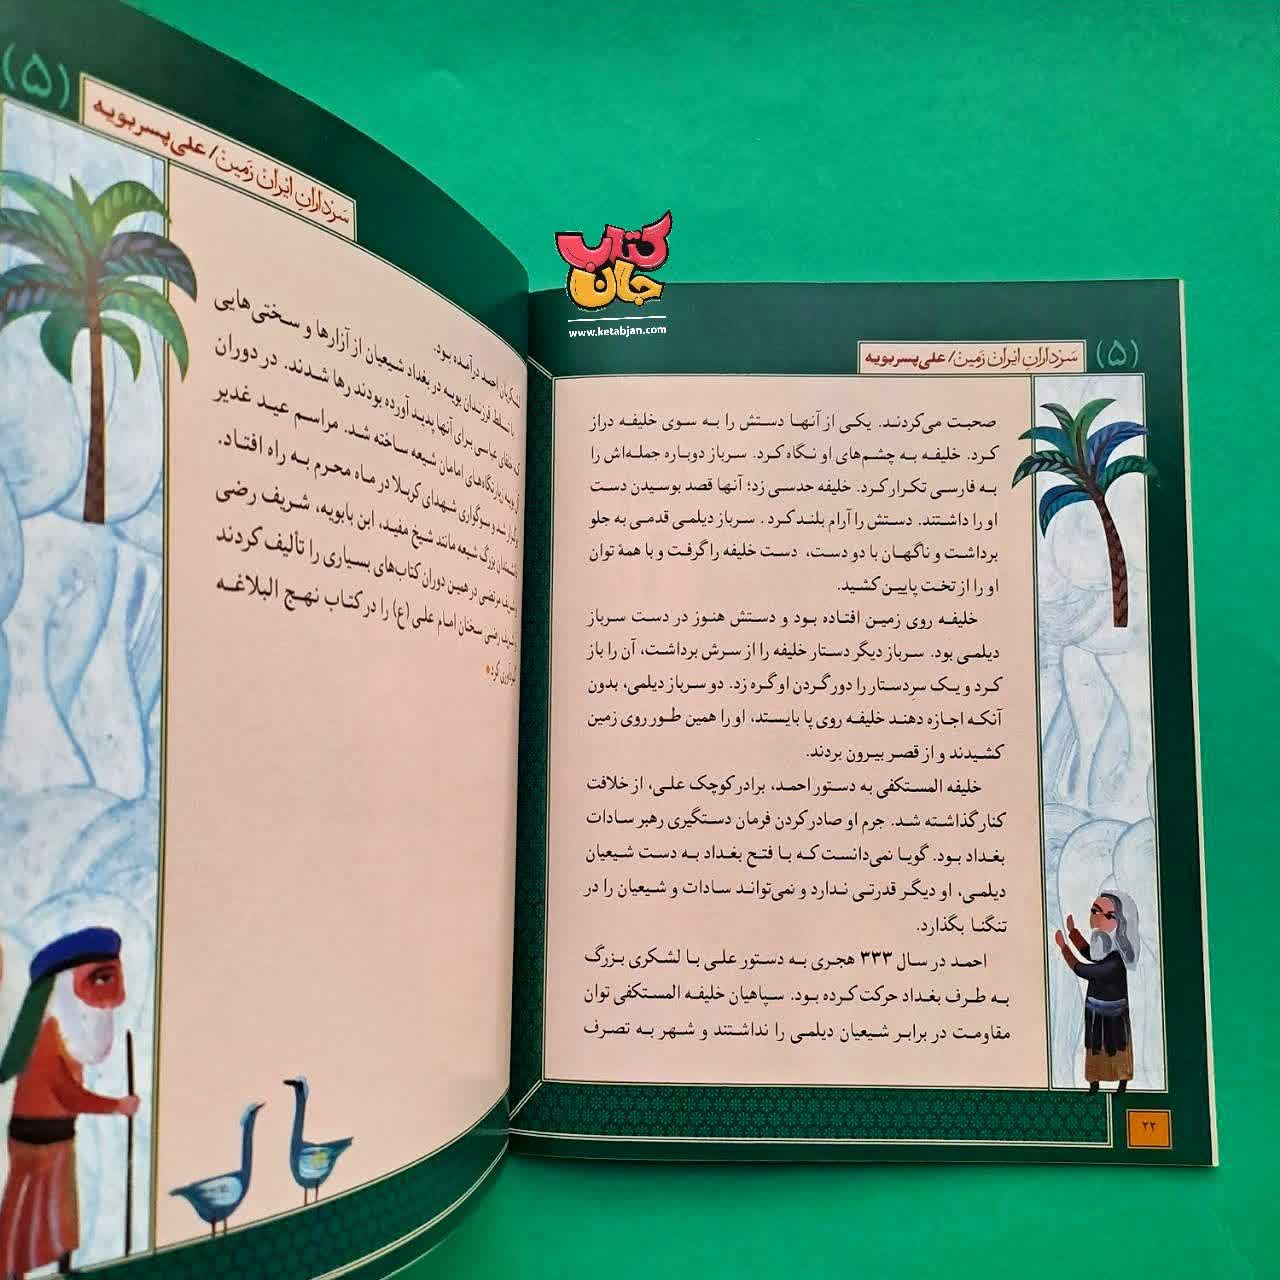 کتاب
جان
www.ketabjan.com
(۵)
سرداران ایران زمین/ علی پسر بویه
صحبت می‌کردند. یکی از آنها دستش را به سوی خلیفه دراز
کرد. خلیفه به چشم‌های او نگاه کرد. سرباز دوباره جمله‌اش را
به فارسی تکرار کرد. خلیفه حدسی زد؛ آنها قصد بوسیدن دست
او را داشتند. دستش را آرام بلند کرد. سرباز دیلمی قدمی به جلو
برداشت و ناگهان با دو دست، دست خلیفه را گرفت و با همهٔ توان
او را از تخت پایین کشید.
خلیفه روی زمین افتاده بود و دستش هنوز در دست سرباز
دیلمی بود. سرباز دیگر دستار خلیفه را از سرش برداشت، آن را باز
کرد و یک سرِدستار را دور گردن او گره زد. دو سرباز دیلمی، بدون
آنکه اجازه دهند خلیفه روی پا بایستد، او را همین طور روی زمین
کشیدند و از قصر بیرون بردند.
خلیفه المستکفی به دستور احمد، برادر کوچک علی، از خلافت
کنار گذاشته شد. جرم او صادر کردن فرمان دستگیری رهبر سادات
بغداد بود. گویا نمی‌دانست که با فتح بغداد به دست شیعیان
دیلمی، او دیگر قدرتی ندارد و نمی‌تواند سادات و شیعیان را در
تنگنا بگذارد.
احمد در سال ۳۳۳ هجری به دستور علی با لشکری بزرگ
به طرف بغداد حرکت کرده بود. سپاهیان خلیفه المستکفی توان
مقاومت در برابر شیعیان دیلمی را نداشتند و شهر به تصرف
۲۲
(۵)
سرداران ایران زمین/ علی پسر بویه
لشکریان احمد درآمده بود.
با تسلط فرزندان بویه در بغداد شیعیان از آزارها و سختی‌هایی
که خلفای عباسی برای آنها پدید آورده بودند رها شدند. در دوران
آل بویه زیارتگاه‌های امامان شیعه ساخته شد. مراسم عید غدیر
برگزار شد و سوگواری شهدای کربلا در ماه محرم به راه افتاد.
دانشمندان بزرگ شیعه مانند شیخ مفید، ابن بابویه، شریف رضی
و شریف مرتضی در همین دوران کتاب‌های بسیاری را تألیف کردند
و شریف رضی سخنان امام علی (ع) را در کتاب نهج البلاغه
گردآوری کرد*